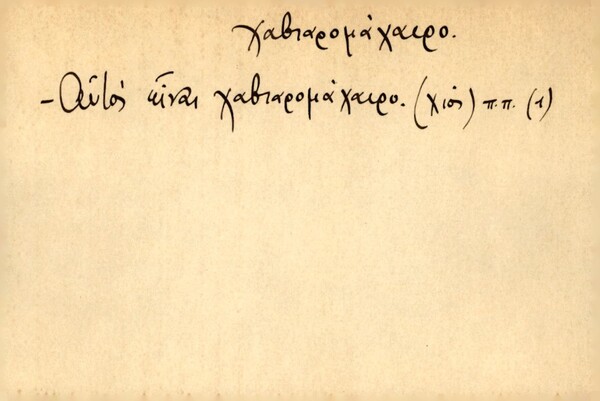 χαβιαρομάχαιρο.
- Αὐτὸς εἶναι χαβιαρομάχαιρο. (Χίος) π.π. (1)